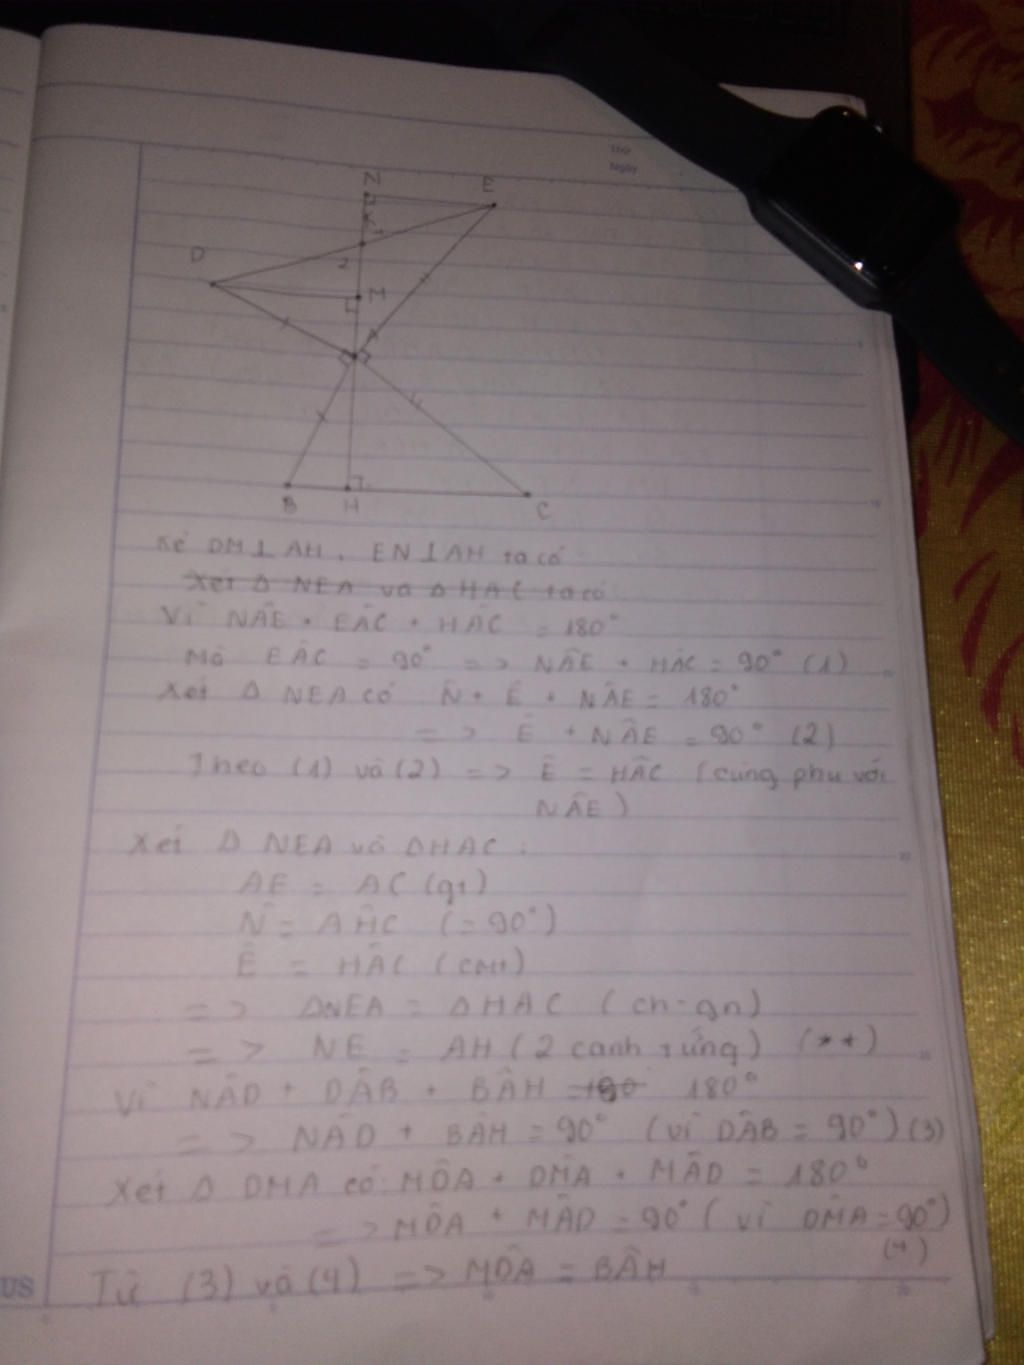 Thứ
Ngày
N
E
K
1
D
2
M
A
B
H
C
Kẻ DM⊥AH, EN⊥AH ta có
Xét Δ NEA và Δ HAC ta có
Vì NÂE + EÂC + HÂC = 180°
Mà EÂC = 90° => NÂE + HÂC = 90° (1)
Xét Δ NEA có N̂ + Ê + NÂE = 180°
=> Ê + NÂE = 90° (2)
Theo (1) và (2) => Ê = HÂC (cùng phụ với
NÂE)
Xét Δ NEA và ΔHAC:
AE = AC (gt)
N̂ = AĤC (=90°)
Ê = HÂC (cmt)
=> ΔNEA = ΔHAC (ch-gn)
=> NE = AH (2 cạnh t ứng) (**)
Vì NÂD + DÂB + BÂH = 180°
=> NÂD + BÂH = 90° (vì DÂB = 90°) (3)
Xét Δ DMA có: MD̂A + DM̂A + MÂD = 180°
=> MD̂A + MÂD = 90° (vì DM̂A = 90°)
(4)
Từ (3) và (4) => MD̂A = BÂH
US